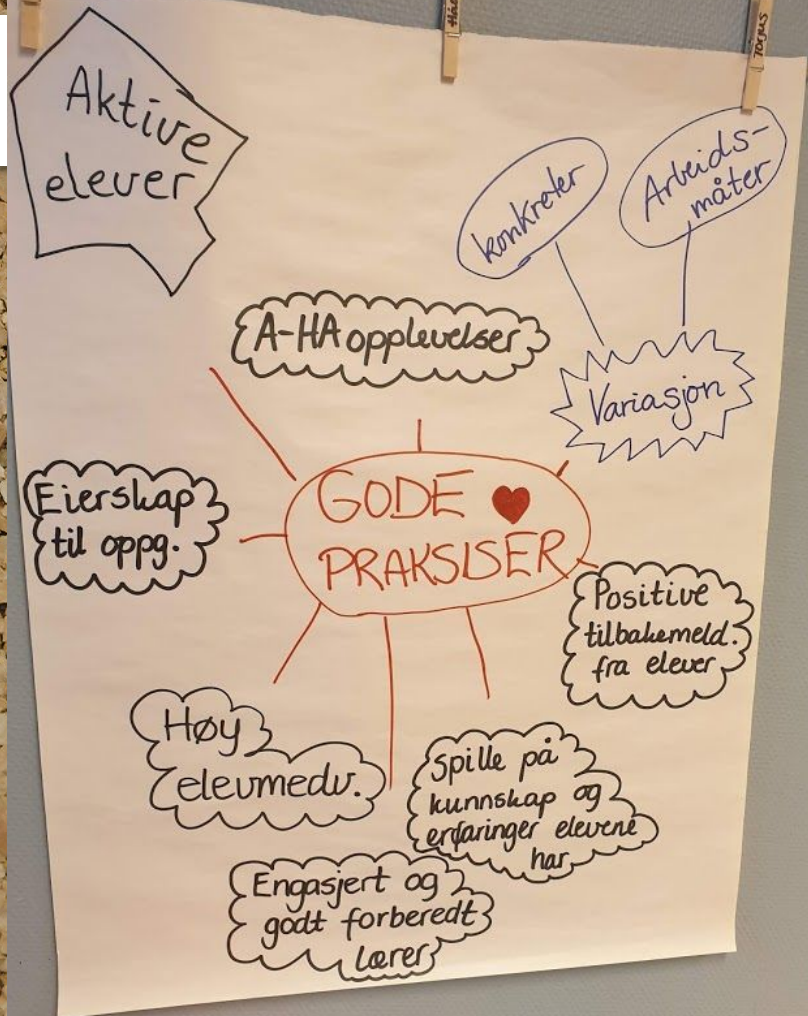 Torjus
Aktive
elever
konkreter
Arbeids-
måter
A-HA opplevelser
Variasjon
GODE ♥
PRAKSISER
Eierskap
til oppg.
Positive
tilbakemeld.
fra elever
Høy
elevmedv.
Spille på
kunnskap og
erfaringer elevene
har
Engasjert og
godt forberedt
lærer